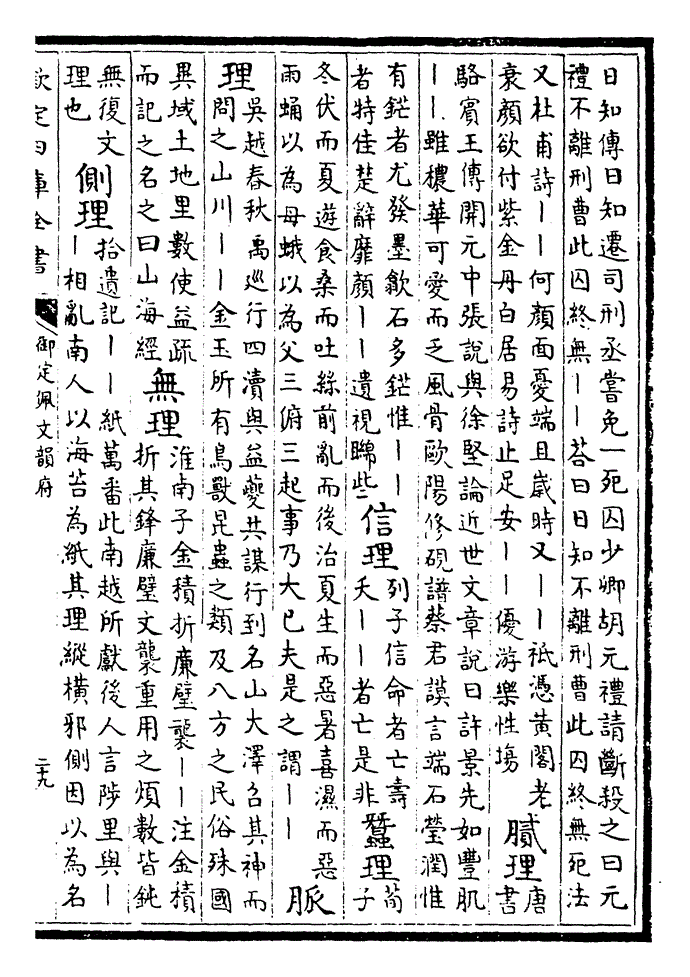 日知傳日知遷司刑丞嘗免一死囚少卿胡元禮請斷殺之曰元
禮不離刑曹此囚終無――荅曰日知不離刑曹此囚終無死法
又杜甫詩――何顔面憂端且歲時又――祗憑黄閣老
衰顔欲付紫金丹白居易詩止足安――優游樂性塲
膩理
唐
書
駱賓王傳開元中張說與徐堅論近世文章說曰許景先如豐肌
――雖穠華可愛而乏風骨歐陽修硯譜蔡君謨言端石瑩潤惟
有鋩者尤發墨歙石多鋩惟――
者特佳楚辭靡顔――遺視矊些
信理
列子信命者亡壽
夭――者亡是非
蠶理
荀
子
冬伏而夏遊食桑而吐絲前亂而後治夏生而惡暑喜濕而惡
雨蛹以為母蛾以為父三俯三起事乃大已夫是之謂――
脈
理
吳越春秋禹廵行四瀆與益夔共謀行到名山大澤召其神而
問之山川――金玉所有鳥獸昆蟲之類及八方之民俗殊國
異域土地里數使益疏
而記之名之曰山海經
無理
淮南子金積折廉璧襲――注金積
折其鋒廉璧文襲重用之煩數皆鈍
無復文
理也
側理
拾遺記――紙萬番此南越所獻後人言陟里與―
―相亂南人以海苔為紙其理縱横邪側因以為名
欽定四庫全書
御定佩文韻府
二九